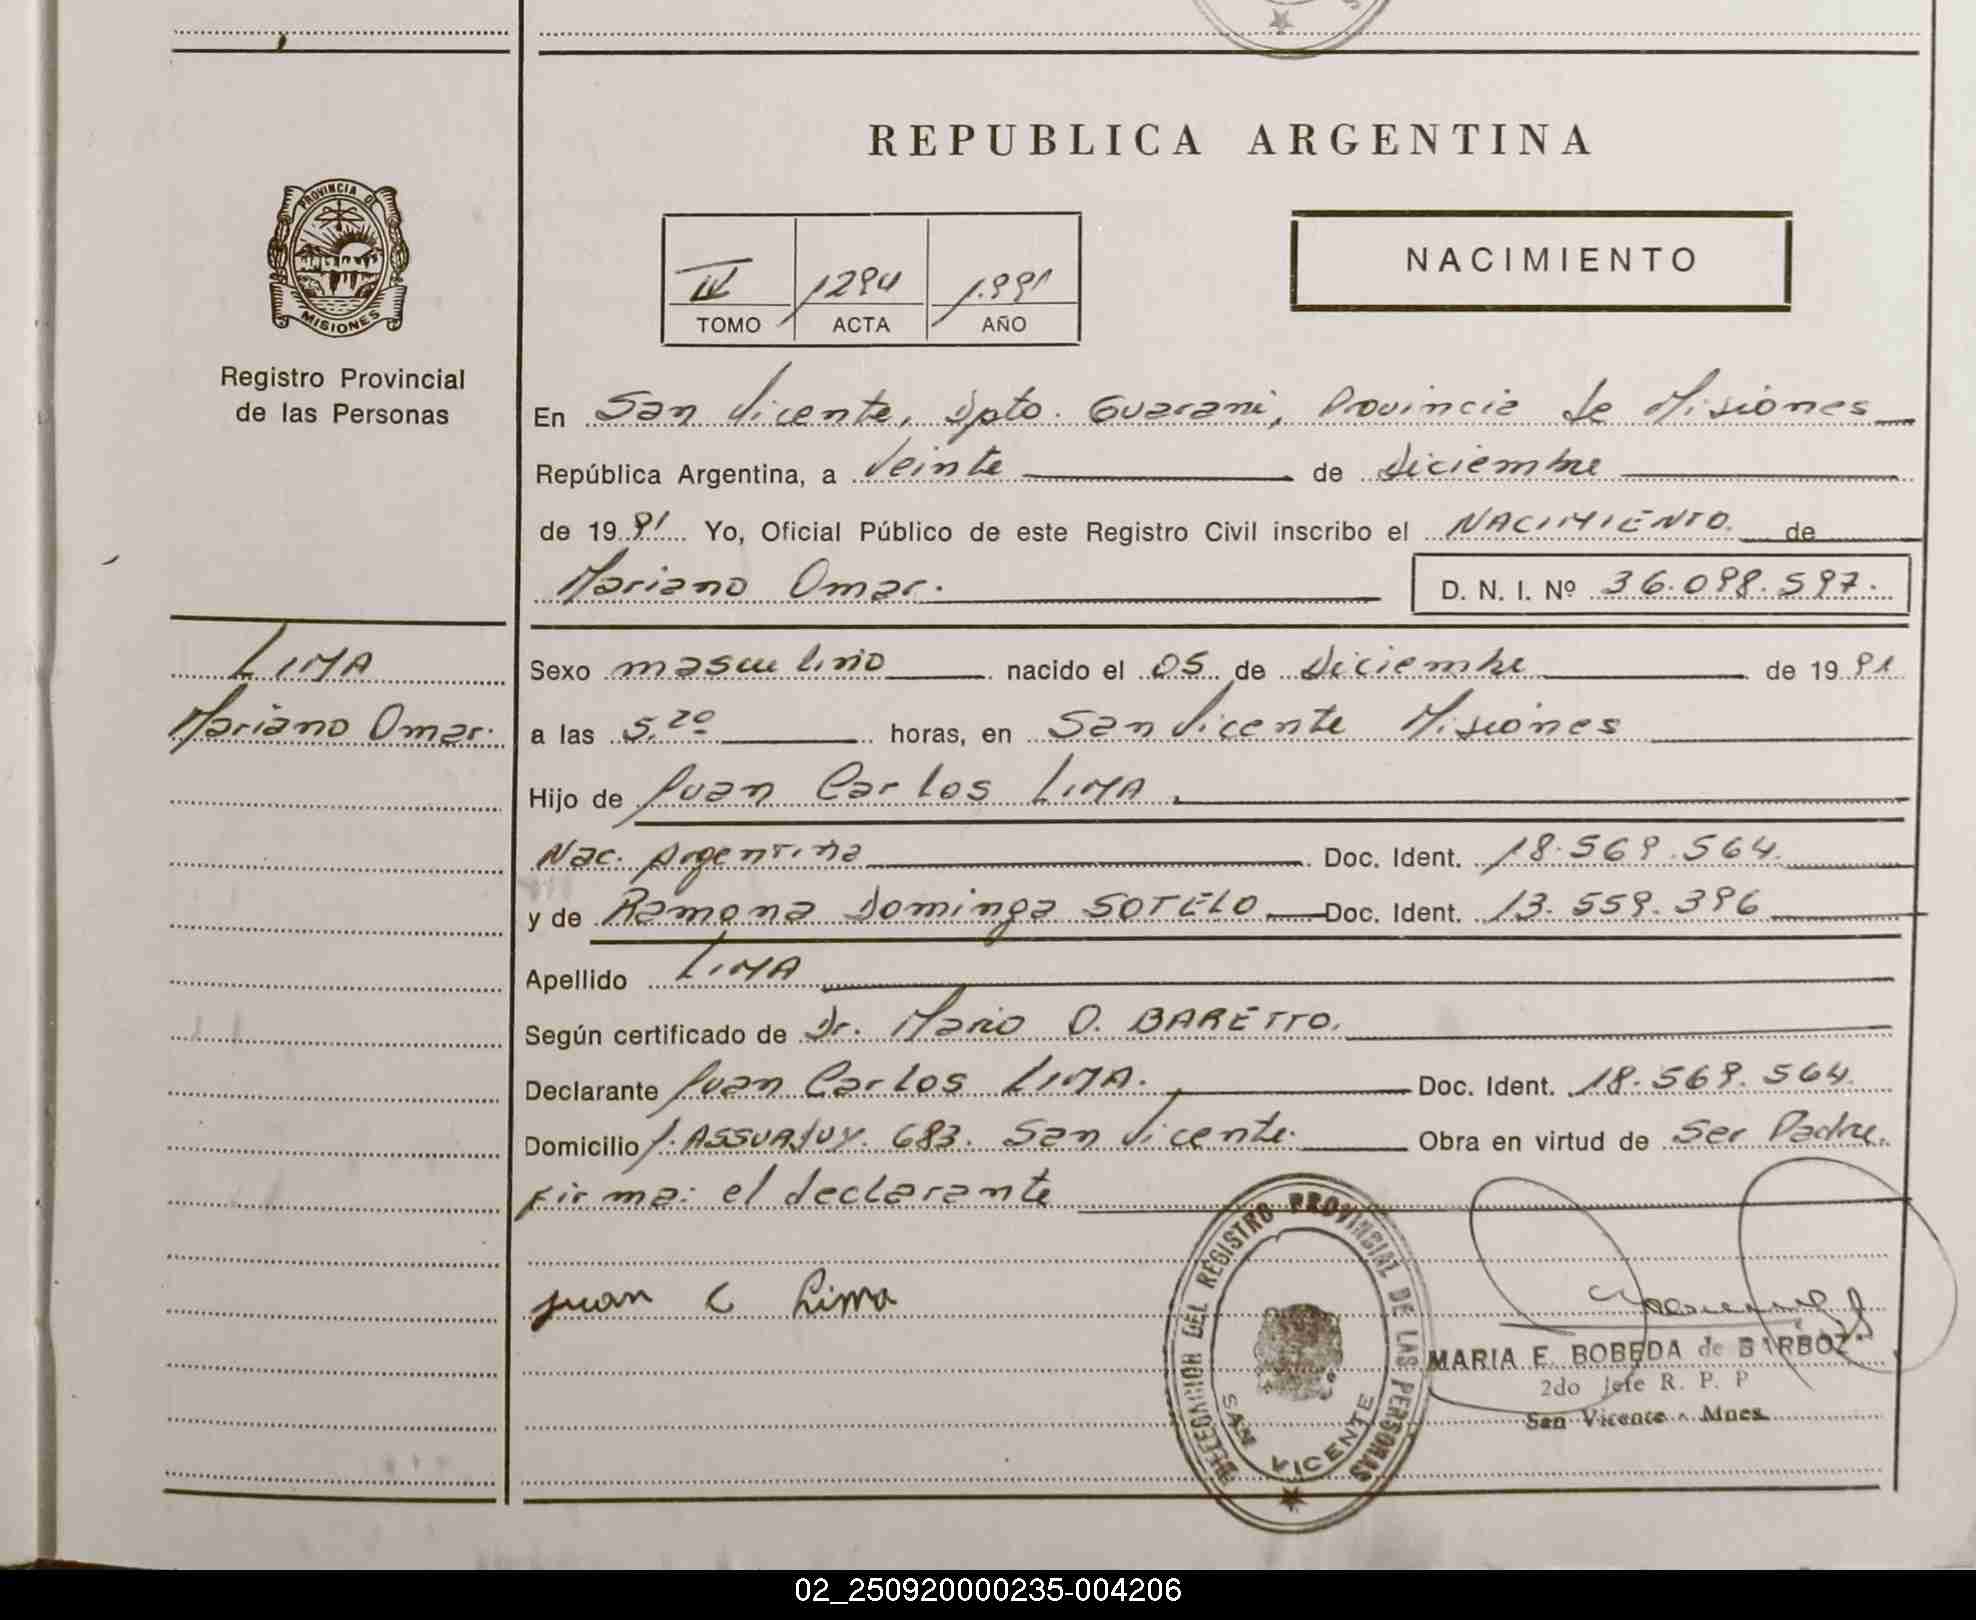 REPUBLICA ARGENTINA
PROVINCIA DE
MISIONES
Registro Provincial
de las Personas
IV 1294 1.991
TOMO ACTA AÑO
NACIMIENTO
En San Vicente, Dpto. Guarani, Provincia de Misiones
República Argentina, a Veinte de Diciembre
de 1991 Yo, Oficial Público de este Registro Civil inscribo el NACIMIENTO de
Mariano Omar. D. N. I. Nº 36.098.597.
LIMA
Mariano Omar.
Sexo masculino nacido el 05 de Diciembre de 1991
a las 5,20 horas, en San Vicente Misiones
Hijo de Juan Carlos LIMA
Nac. Argentina Doc. Ident. 18.569.564.
y de Ramona Dominga SOTELO Doc. Ident. 13.559.396
Apellido LIMA
Según certificado de Dr. Mario O. BARETTO.
Declarante Juan Carlos LIMA. Doc. Ident. 18.569.564.
Domicilio 683. San Vicente. Obra en virtud de Ser Padre.
Firma: el declarante
Juan C Lima
DELEGACION DEL REGISTRO PROVINCIAL DE LAS PERSONAS
SAN VICENTE
MARIA E. BOBEDA de BARBOZA
2do Jefe R. P. P
San Vicente - Mnes
02_250920000235-004206